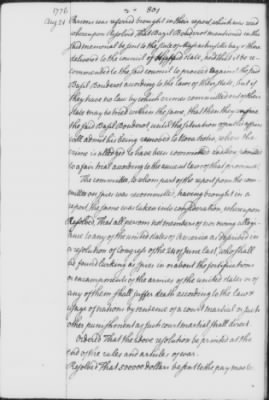 1776
Aug. 21
801
Prisoners was reported brought in their report which was read
whereupon Resolved That Bazil Bouderot mentioned in the
said memorial be sent to the state of Massachusetts bay & then
delivered to the council of said state, and that it be re-
commended to the said council to proceed against the said
Bazil Bouderot according to the laws of their state, but if
they have no law by which crimes committed out of their
state may be tried within the same, that then they confine
the said Bazil Bouderot until the situation of public affairs
will admit his being removed to Nova Scotia, where the
crime is alledged to have been committed & submitted
to a fair trial according to the usual law of that province;
The committee, to whom part of the report from the com-
mittee on spies was recommitted, having brought in a
report, the same was taken into consideration, whereupon
Resolved, That all persons not members of nor owing allegi-
ance to any of the united states of America as described in
a resolution of Congress of the 24 of June last, who shall
be found lurking as spies in or about the fortifications
or encampments of the armies of the united states or of
any of them shall suffer death according to the law &
usage of nations by sentence of a court martial or such
other punishment as such court martial shall direct.
Ordered That the above resolution be printed at the
end of the rules and articles of war.
Resolved That 500000 dollars be sent to the pay master